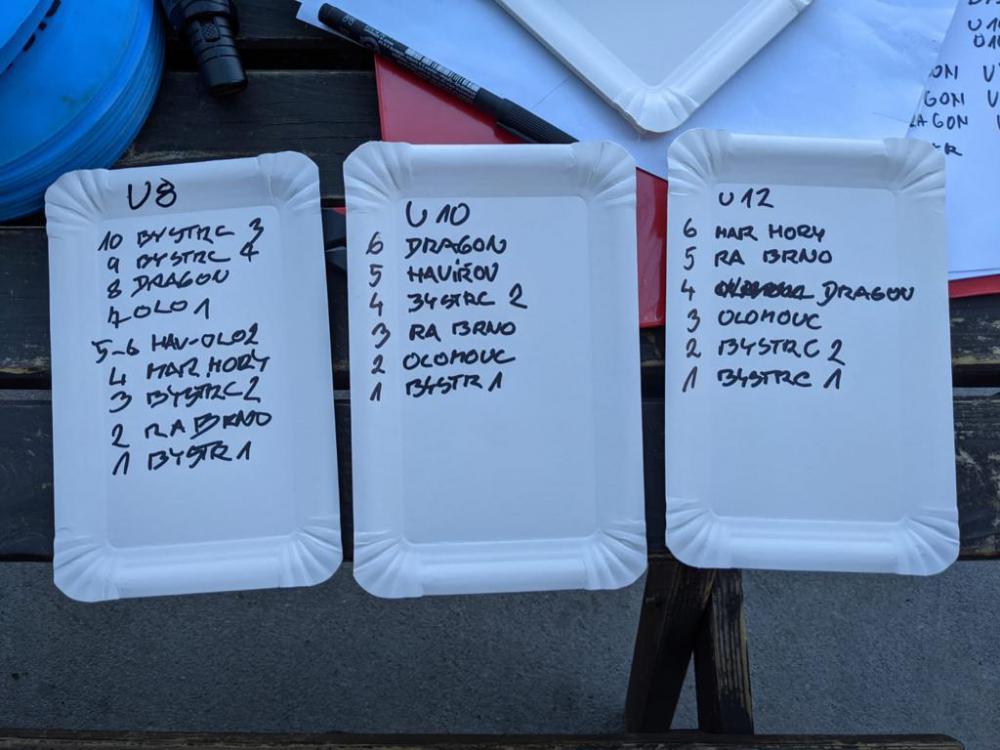 U8
10 BYSTRC 3
9 BYSTRC 4
8 DRAGON
7 OLO 1
5-6 HAV-OLO2
4 MAR HORY
3 BYSTRC 2
2 RA BRNO
1 BYSTR 1
U 10
6 DRAGON
5 HAVÍŘOV
4 BYSTRC 2
3 RA BRNO
2 OLOMOUC
1 BYSTR 1
U 12
6 MAR HORY
5 RA BRNO
4 DRAGON
3 OLOMOUC
2 BYSTRC 2
1 BYSTRC 1